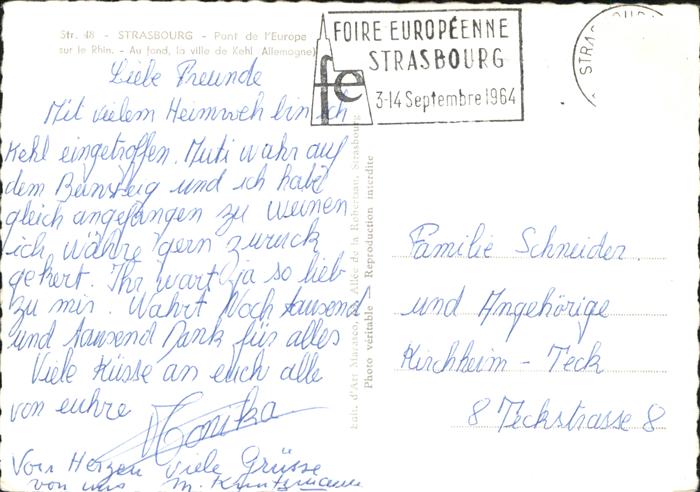 Str. 48 - STRASBOURG - Pont de l'Europe
sur le Rhin. - Au fond, la ville de Kehl (Allemagne)
FOIRE EUROPÉENNE
STRASBOURG
3-14 Septembre 1964
fe
STRASBOURG
Liebe Freunde
Mit vielem Heimweh bin ich
Kehl eingetroffen. Muti wahr auf
dem Bahnsteig und ich habe
gleich angefangen zu weinen
ich währe gern zurück
gekert. Ihr wart ja so lieb
zu mir. Wahrt Noch tausend
und tausend Dank für alles
Viele Küsse an euch alle
von euhre Monika
Von Herzen viele Grüsse
von uns. M. Kuntzmann
Edit. d'Art Allée de la Robertsau, Strasbourg
Photo véritable - Reproduction interdite
Familie Schneider
und Angehörige
Kirchheim-Teck
8 Teckstrasse 8